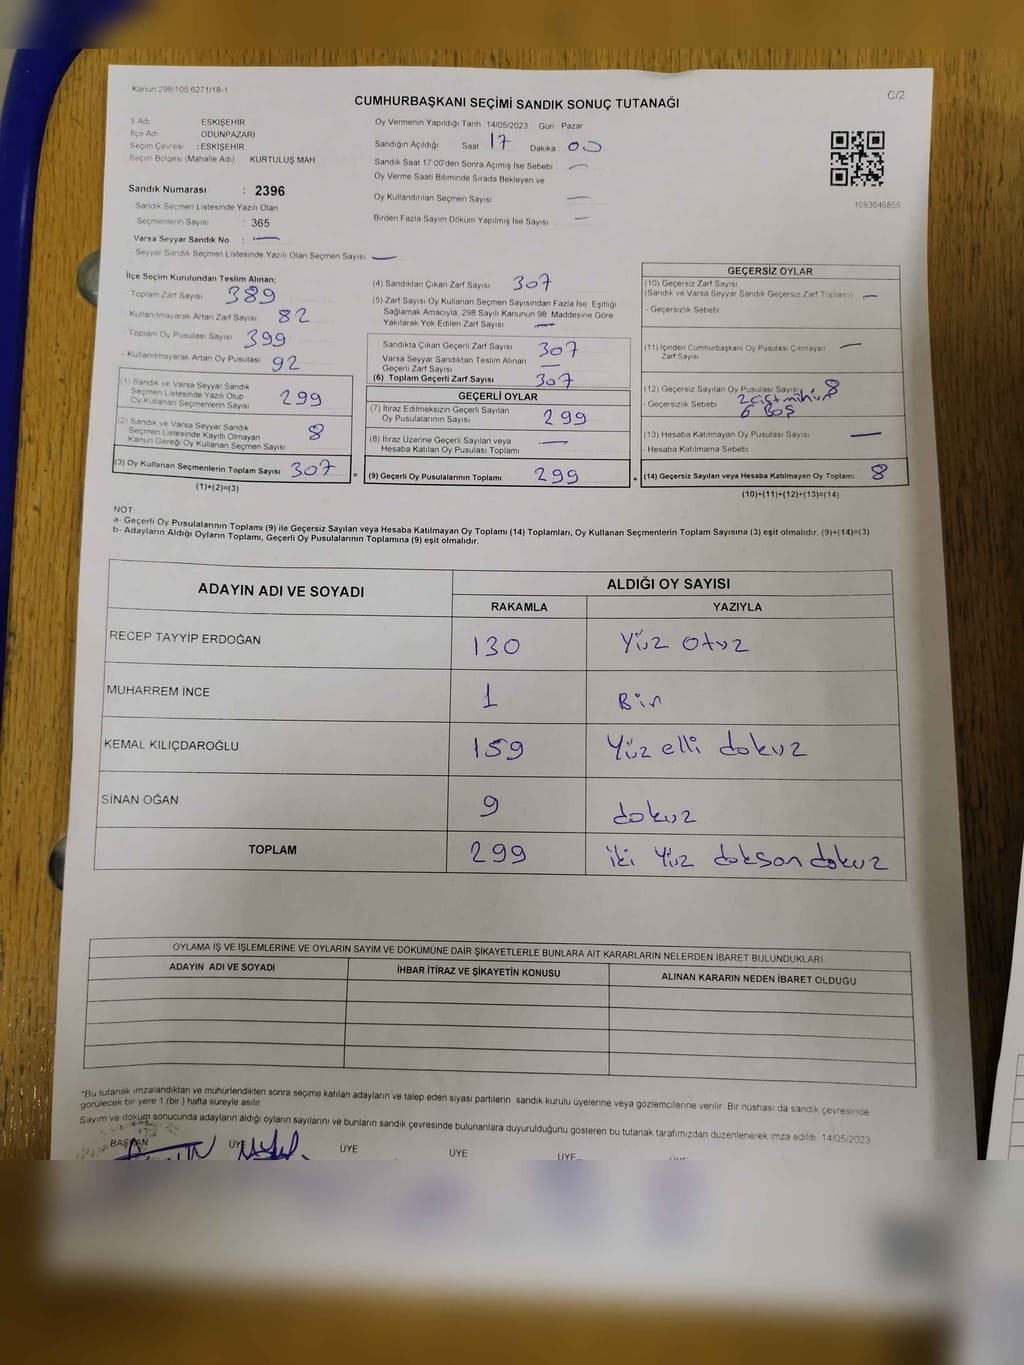 Kanun 298/105 6271/18-1
C/2
CUMHURBAŞKANI SEÇİMİ SANDIK SONUÇ TUTANAĞI
İl Adı ESKİŞEHİR
İlçe Adı ODUNPAZARI
Seçim Çevresi : ESKİŞEHİR
Seçim Bölgesi (Mahalle Adı) KURTULUŞ MAH.
Sandık Numarası : 2396
- Sandık Seçmen Listesinde Yazılı Olan
Seçmenlerin Sayısı : 365
Varsa Seyyar Sandık No : —
- Seyyar Sandık Seçmen Listesinde Yazılı Olan Seçmen Sayısı —
Oy Vermenin Yapıldığı Tarih 14/05/2023 Gün Pazar
Sandığın Açıldığı Saat 17 Dakika : 00
Sandık Saat 17 00'den Sonra Açımış İse Sebebi —
Oy Verme Saati Bitiminde Sırada Bekleyen ve
Oy Kullandırılan Seçmen Sayısı —
Birden Fazla Sayım Döküm Yapılmış İse Sayısı —
1093646855
İlçe Seçim Kurulundan Teslim Alınan;
- Toplam Zarf Sayısı 389
- Kullanılmayarak Artan Zarf Sayısı 82
- Toplam Oy Pusulası Sayısı 399
- Kullanılmayarak Artan Oy Pusulası 92
(1) Sandık ve Varsa Seyyar Sandık
Seçmen Listesinde Yazılı Olup
Oy Kullanan Seçmenlerin Sayısı 299
(2) Sandık ve Varsa Seyyar Sandık
Seçmen Listesinde Kayıtlı Olmayan
Kanun Gereği Oy Kullanan Seçmen Sayısı 8
(3) Oy Kullanan Seçmenlerin Toplam Sayısı 307
(1)+(2)=(3)
(4) Sandıktan Çıkan Zarf Sayısı 307
(5) Zarf Sayısı Oy Kullanan Seçmen Sayısından Fazla İse, Eşitliği
Sağlamak Amacıyla; 298 Sayılı Kanunun 98. Maddesine Göre
Yakılarak Yok Edilen Zarf Sayısı —
Sandıkta Çıkan Geçerli Zarf Sayısı 307
Varsa Seyyar Sandıktan Teslim Alınan
Geçerli Zarf Sayısı —
(6) Toplam Geçerli Zarf Sayısı 307
GEÇERLİ OYLAR
(7) İtiraz Edilmeksizin Geçerli Sayılan
Oy Pusulalarının Sayısı 299
(8) İtiraz Üzerine Geçerli Sayılan veya
Hesaba Katılan Oy Pusulası Toplamı —
= (9) Geçerli Oy Pusulalarının Toplamı 299 +
GEÇERSİZ OYLAR
(10) Geçersiz Zarf Sayısı
(Sandık ve Varsa Seyyar Sandık Geçersiz Zarf Toplamı) —
- Geçersizlik Sebebi
(11) İçinden Cumhurbaşkanı Oy Pusulası Çıkmayan
Zarf Sayısı —
(12) Geçersiz Sayılan Oy Pusulası Sayısı 8
- Geçersizlik Sebebi 2 çift mühür
6 Boş
(13) Hesaba Katılmayan Oy Pusulası Sayısı —
- Hesaba Katılmama Sebebi
(14) Geçersiz Sayılan veya Hesaba Katılmayan Oy Toplamı 8
(10)+(11)+(12)+(13)=(14)
NOT:
a- Geçerli Oy Pusulalarının Toplamı (9) ile Geçersiz Sayılan veya Hesaba Katılmayan Oy Toplamı (14) Toplamları, Oy Kullanan Seçmenlerin Toplam Sayısına (3) eşit olmalıdır. (9)+(14)=(3)
b- Adayların Aldığı Oyların Toplamı, Geçerli Oy Pusulalarının Toplamına (9) eşit olmalıdır.
ADAYIN ADI VE SOYADI ALDIĞI OY SAYISI
RAKAMLA YAZIYLA
RECEP TAYYİP ERDOĞAN 130 Yüz otuz
MUHARREM İNCE 1 Bir
KEMAL KILIÇDAROĞLU 159 Yüz elli dokuz
SİNAN OĞAN 9 dokuz
TOPLAM 299 iki Yüz doksan dokuz
OYLAMA İŞ VE İŞLEMLERİNE VE OYLARIN SAYIM VE DÖKÜMÜNE DAİR ŞİKAYETLERLE BUNLARA AİT KARARLARIN NELERDEN İBARET BULUNDUKLARI
ADAYIN ADI VE SOYADI İHBAR İTİRAZ VE ŞİKAYETİN KONUSU ALINAN KARARIN NEDEN İBARET OLDUĞU
*Bu tutanak imzalandıktan ve mühürlendikten sonra seçime katılan adayların ve talep eden siyasi partilerin sandık kurulu üyelerine veya gözlemcilerine verilir. Bir nüshası da sandık çevresinde
görülecek bir yere 1 (bir ) hafta süreyle asılır
Sayım ve döküm sonucunda adayların aldığı oyların sayılarını ve bunların sandık çevresinde bulunanlara duyurulduğunu gösteren bu tutanak tarafımızdan düzenlenerek imza edildi 14/05/2023
BAŞKAN ÜYE ÜYE ÜYE ÜYE